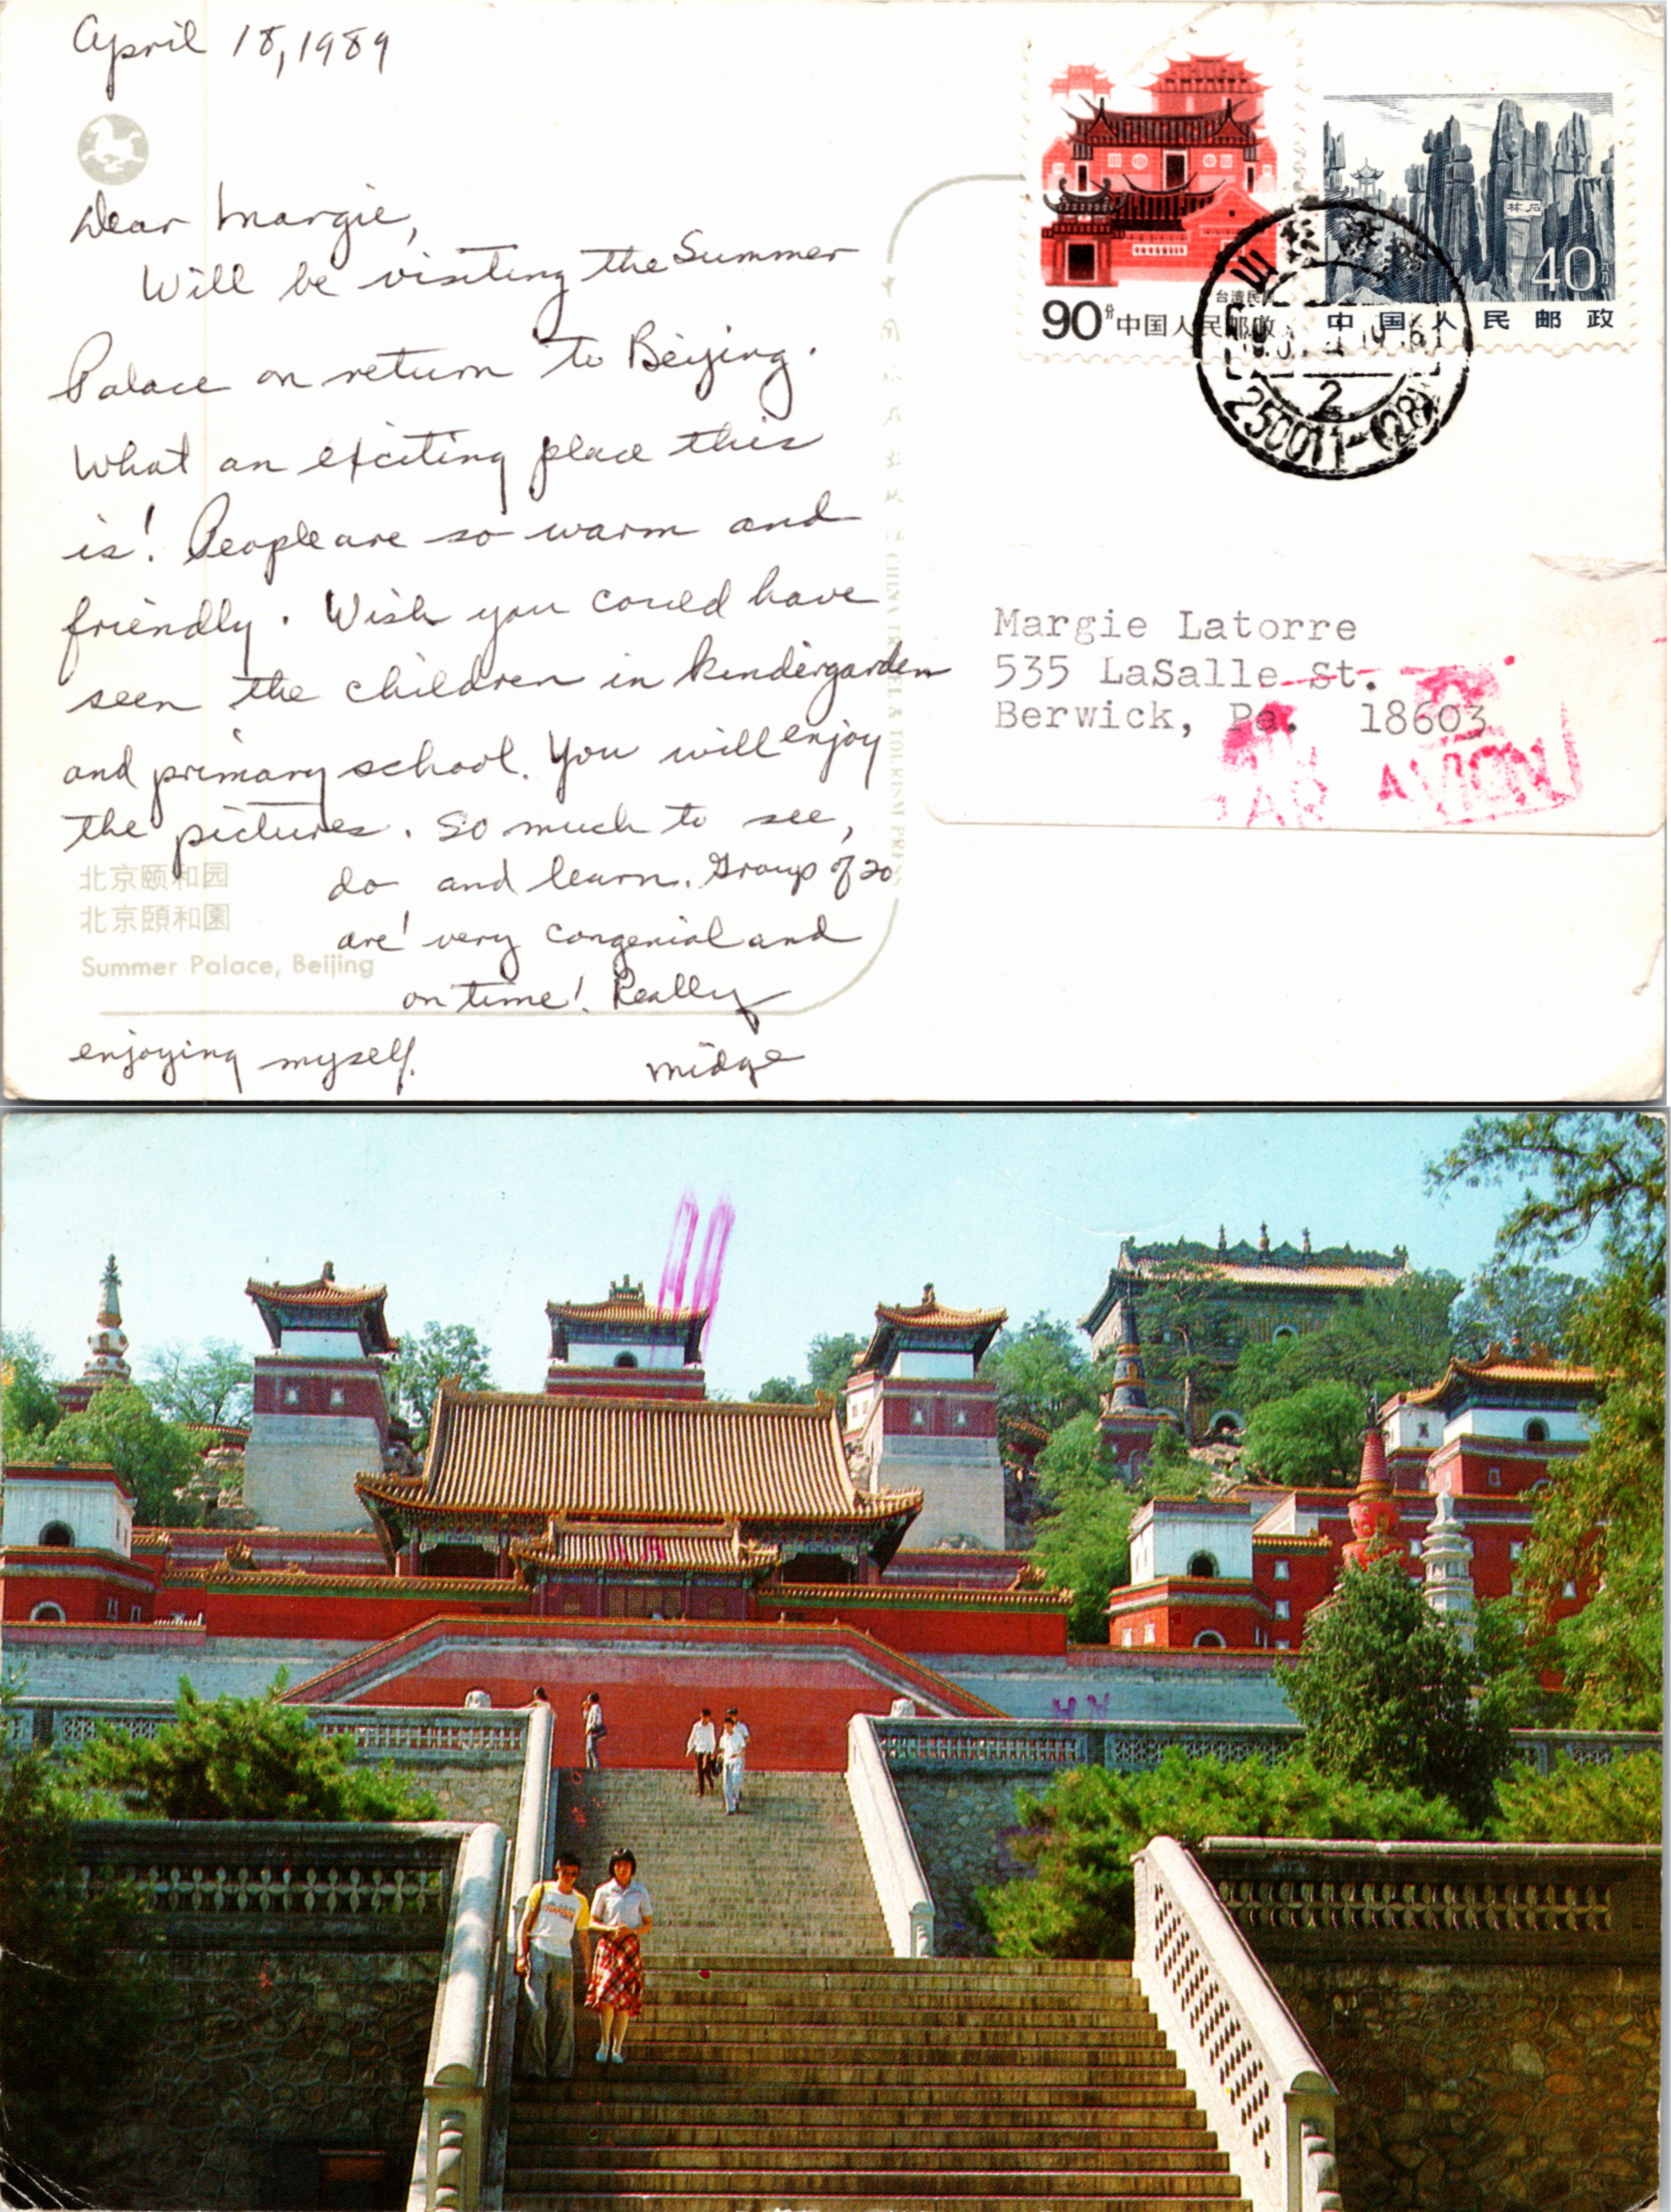 April 18, 1989
Dear Margie,
Will be visiting the Summer
Palace on return to Beijing.
What an exciting place this
is! People are so warm and
friendly. Wish you could have
seen the children in kindergarden
and primary school. You will enjoy
the pictures. So much to see,
do and learn. Group of 20
are very congenial and
on time! Really
enjoying myself.
Midge
北京颐和园
北京頤和園
Summer Palace, Beijing
CHINA TRAVEL & TOURISM PRESS
台湾民居
90分 中国人民邮政
石林
40分
中国人民邮政
山东济南
2
250011-(28)
Margie Latorre
535 LaSalle St.
Berwick, Pa. 18603
PAR AVION